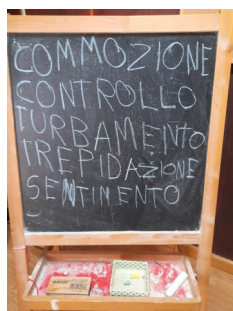 COMMOZIONE
CONTROLLO
TURBAMENTO
TREPIDAZIONE
SENTIMENTO